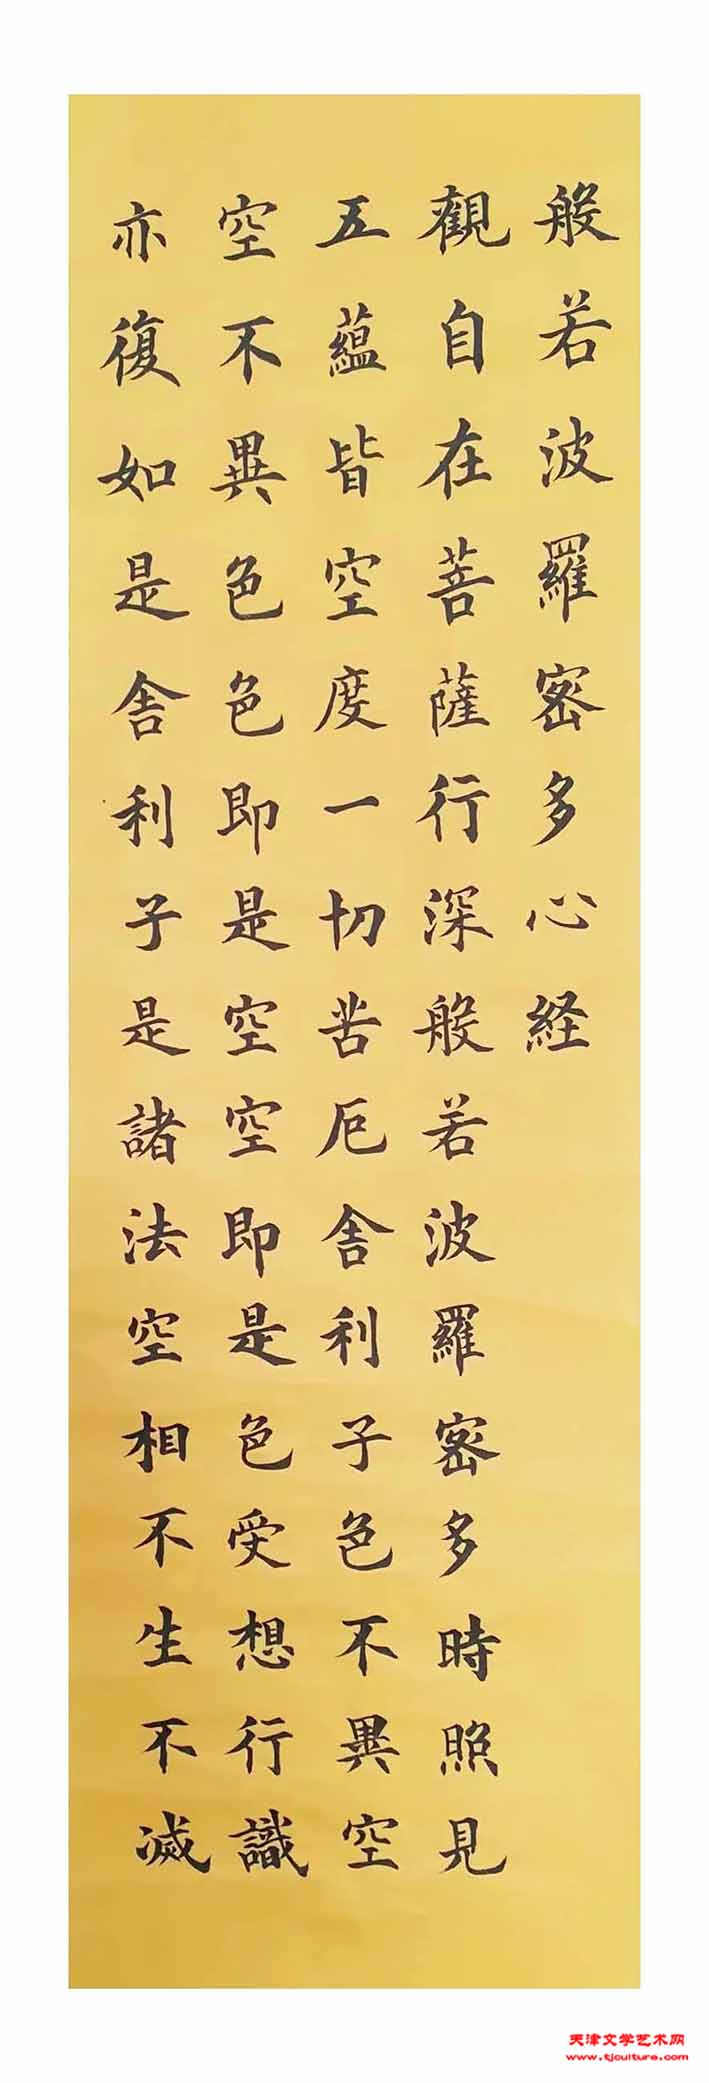 般若波羅密多心経
觀自在菩薩行深般若波羅密多時照見
五蘊皆空度一切苦厄舍利子色不異空
空不異色色即是空空即是色受想行識
亦復如是舍利子是諸法空相不生不滅
天津文学艺术网
www.tjculture.com